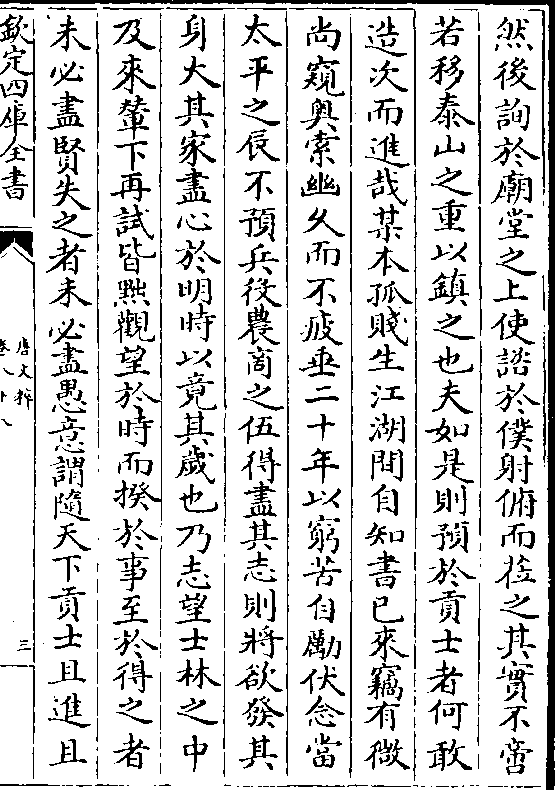 然後詢於廟堂之上使諮於僕射俯而捡之其實不啻
若移泰山之重以鎮之也夫如是則預於貢士者何敢
造次而進哉某本孤賤生江湖間自知書已來竊有微
尚窺奥索幽久而不疲垂二十年以窮苦自勵伏念當
太平之辰不預兵役農商之伍得盡其志則將欲發其
身大其家盡心於明時以竟其歲也乃志望士林之中
及來輦下再試皆黜觀望於時而揆於事至於得之者
未必盡賢失之者未必盡愚意謂隨天下貢士且進且
欽定四庫全書
唐文粹
卷八十八
三